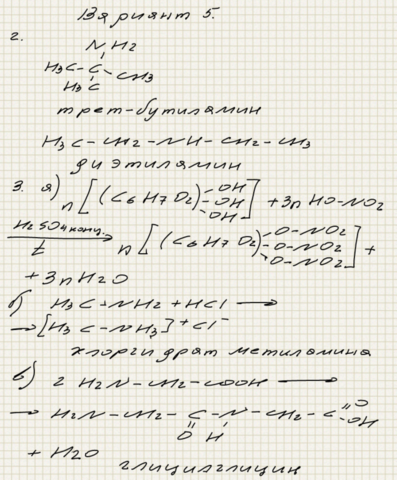 Вариант 5.
2.
NH2
H3C-C-CH3
H3C
трет-бутиламин
H3C-CH2-NH-CH2-CH3
диэтиламин
3. а) n[(C6H7O2)-OH -OH -OH] + 3n HO-NO2
H2SO4 конц. t → n[(C6H7O2)-O-NO2 -O-NO2 -O-NO2] +
+ 3n H2O
б) H3C-NH2 + HCl →
→ [H3C-NH3]+Cl-
хлоргидрат метиламина
в) 2 H2N-CH2-COOH →
→ H2N-CH2-C-N-CH2-C=O -OH
O H
+ H2O
глицилглицин